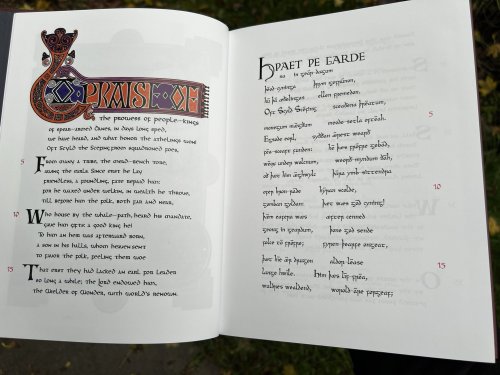 LO PRAISE OF
the prowess of people-kings
of spear-armed Danes, in days long sped,
we have heard, and what honor the athelings won
Oft Scyld the Scefing from squadroned foes,
5 From many a tribe, the mead-bench tore,
awing the earls. Since erst he lay
friendless, a foundling, fate repaid him:
for he waxed under welkin, in wealth he throve,
till before him the folk, both far and near,
10 Who house by the whale-path, heard his mandate,
gave him gifts: a good king he!
To him an heir was afterward born,
a son in his halls, whom heaven sent
to favor the folk, feeling their woe
15 That erst they had lacked an earl for leader
so long a while; the Lord endowed him,
the Wielder of Wonder, with world's renown.
HǷAET ǷE GARDE
na in geār-dagum
þēod-cyninga þrym gefrūnon,
hū þā æðelingas ellen fremedon.
Oft Scyld Scēfing sceaðena þrēatum,
5 monegum mǣgðum meodo-setla oftēah.
Egsode eorl, syððan ǣrest wearð
fēa-sceaft funden: hē þæs frōfre gebād,
wēox under wolcnum, weorð-myndum ðāh,
oð þæt him ǣghwylc þāra ymb-sittendra
10 ofer hron-rāde hȳran scolde,
gomban gyldan: þæt wæs gōd cyning!
þǣm eafera wæs æfter cenned
geong in geardum, þone god sende
folce tō frōfre; fyren-þearfe ongeat,
15 þæt hīe ǣr drugon aldor-lēase
lange hwīle. Him þæs līf-frēa,
wuldres wealdend, worold-āre forgeaf;